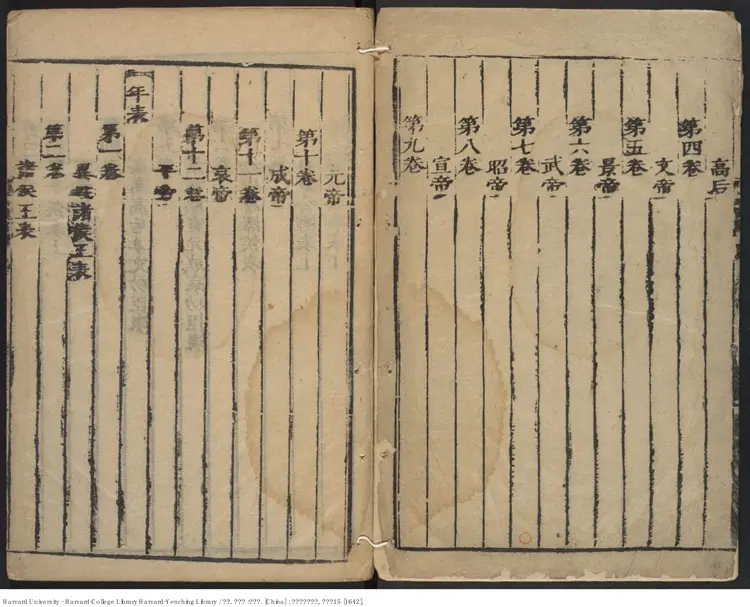 高后
第四卷
文帝
第五卷
景帝
第六卷
武帝
第七卷
昭帝
第八卷
宣帝
第九卷
元帝
第十卷
成帝
第十一卷
哀帝
第十二卷
平帝
年表
第一卷
異姓諸侯王表
第二卷
諸侯王表
Harvard University - Harvard College Library Harvard-Yenching Library / ??. ??? :???. [China] : ???????, ???15 [1642].